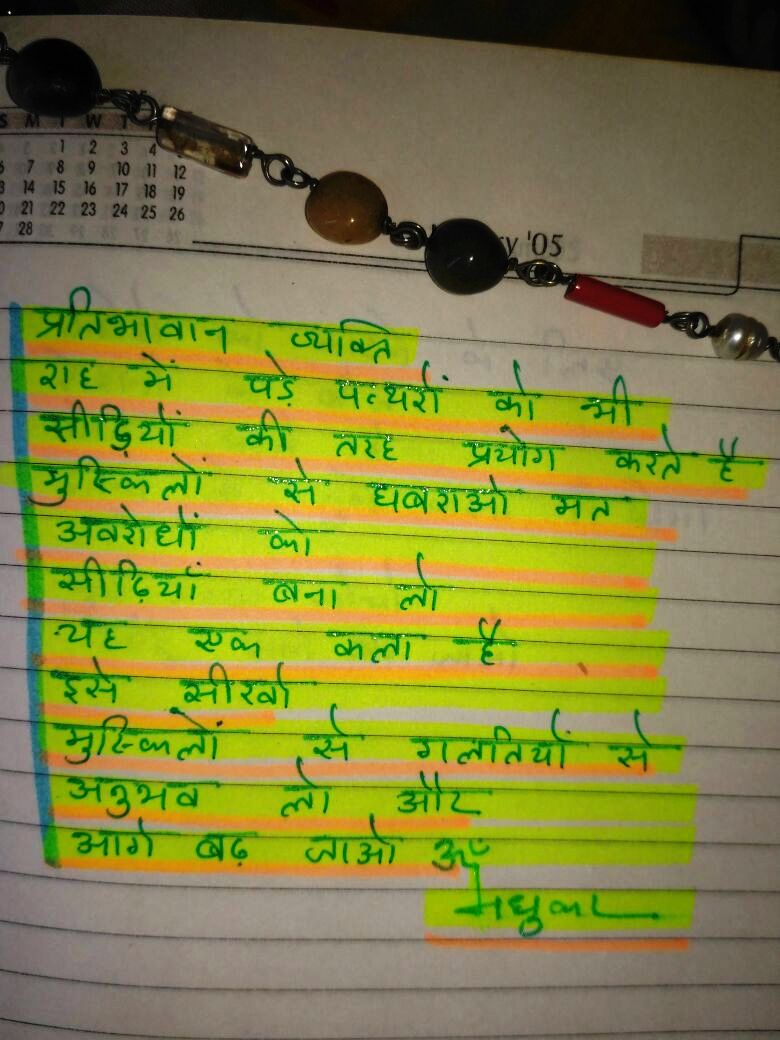 S M T W T
1 2 3 4
6 7 8 9 10 11 12
13 14 15 16 17 18 19
20 21 22 23 24 25 26
27 28
'05
प्रतिभावान व्यक्ति
राह में पड़े पत्थरों को भी
सीढ़ियों की तरह प्रयोग करते है
मुस्किलों से घबराओ मत
अवरोधों को
सीढ़ियाँ बना लो
यह एक कला है
इसे सीखो
मुस्किलों से गलतियों से
अनुभव लो और
आगे बढ़ जाओ ॐ
मधुकर